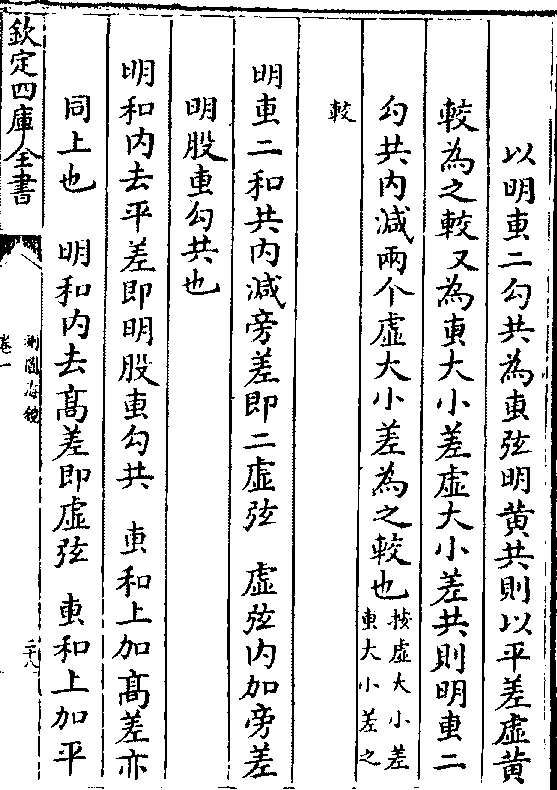 以明叀二勾共為叀弦明黄共則以平差虚黄
較為之較又為叀大小差虚大小差共則明叀二
勾共内減兩个虚大小差為之較也按虚大小差
叀大小差之
較
明叀二和共内減旁差即二虚弦　虚弦内加旁差
明股叀勾共也
明和内去平差即明股叀勾共　叀和上加髙差亦
同上也　明和内去髙差即虚弦　叀和上加平
欽定四庫全書
測圓海鏡
卷一
二十八